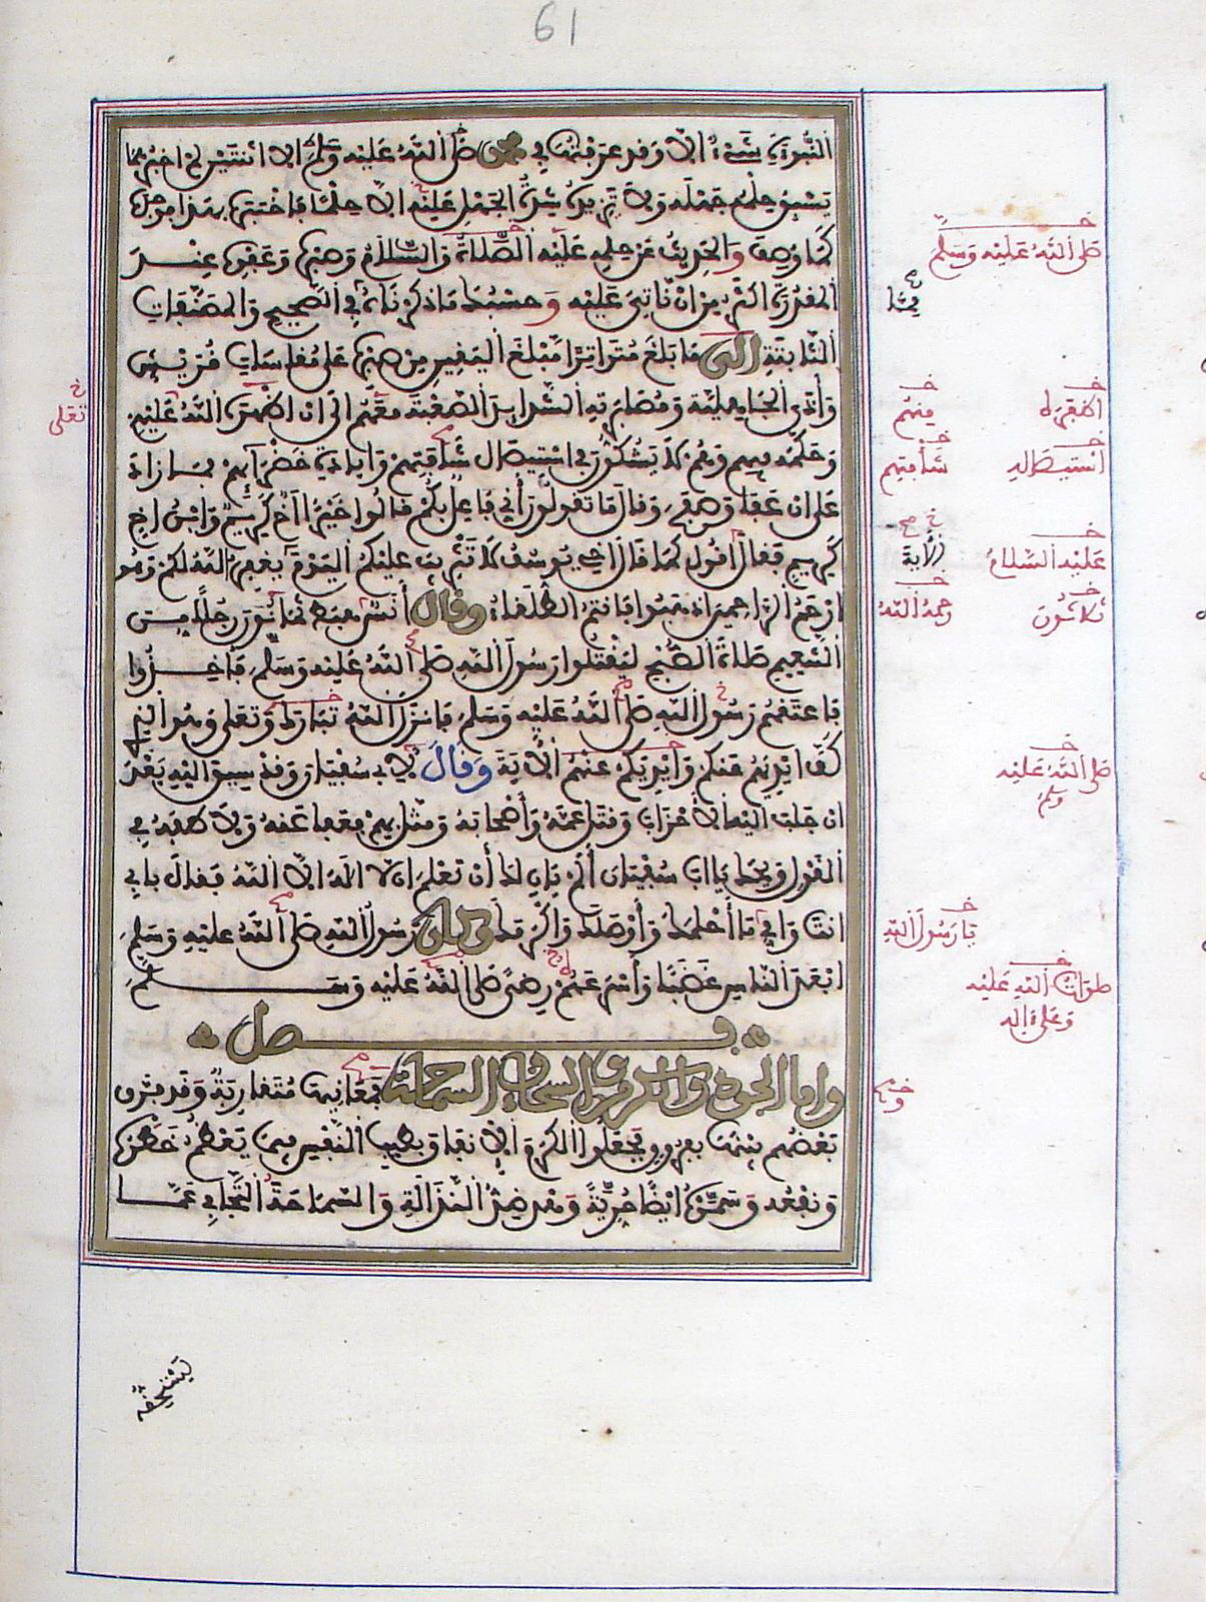 61
النبوءة شيء الا وقد عرفتها في محمد صلى الله عليه وسلم الا اثنتين لم اخبرهما
يسبق حلمه جهله ولا تزيده شدة الجهل عليه الا حلما فاختبرته بهذا فوجده
كما وصف والحديث عن حلمه عليه الصلاة والسلام وصبره وعفوه عنـد
المقدرة اكثر من ان ناتي عليه وحسبك ما ذكرناه في الصحيح والمصنفات
الثابتة الى ما بلغ متواترا مبلغ اليقين من صبره على مقاسات قريش
وأذى الجاهلية ومصابرته الشدائد الصعبة معهم الى ان اظهره الله عليهم
وحكمه فيهم وهم لا يشكون في استيصال شأفتهم وابادة خضرآئهم فما زاد
على ان عفا وصفح وقال ما تقولون أني فاعل بكم قالوا خيرا اخ كريم وابن اخ
كريم فقال اقول كما قال اخي يوسف لا تثريب عليكم اليوم يغفر الله لكم وهو
ارحم الراحمين اذهبوا فانتم الطلقاء وقال أنس هبط ثمانون رجلا مـن
التنعيم صلاة الصبح ليقتلوا رسول الله صلى الله عليه وسلم فأخـذوا
فاعتقهم رسول الله صلى الله عليه وسلم فانزل الله تبارك وتعلى وهو الذي
كف ايديهم عنكم وايديكم عنهم الأية وقال لأبي سفيان وقد سيق اليه بعد
ان جلب اليه الأحزاب وقتل عمه وأصحابه ومثل بهم فعفا عنه ولاطفه في
القول ويحك يا ابا سفيان ألم يان لك أن تعلم ان لا اله الا الله فقال بابي
انت وامي ما أحلمك وأوصلك واكرمك وكان رسول الله صلى الله عليه وسلم
ابعد الناس غضبا وأسرعهم رضى صلى الله عليه وسـلم
فـصل
واما الجود والكرم والسخاء والسماحة فمعانيها متقاربة وقد فرق
بعضهم بينها بفروق فجعلوا الكرم الانفاق بطيب النفس فيما يعظم خطره
ونفعه وسموه ايضا حرية وهو ضد النذالة والسماحة التجافي عما
صلى الله عليه وسلم
تعلى
اظفره
منهم
استيصاله
شأفتهم
عليه السلام
الأية
ثلاثون
رحمه الله
صلى الله عليه
وسلم
يا رسول الله
صلوات الله عليه
وعلى ءاله
يستحقه